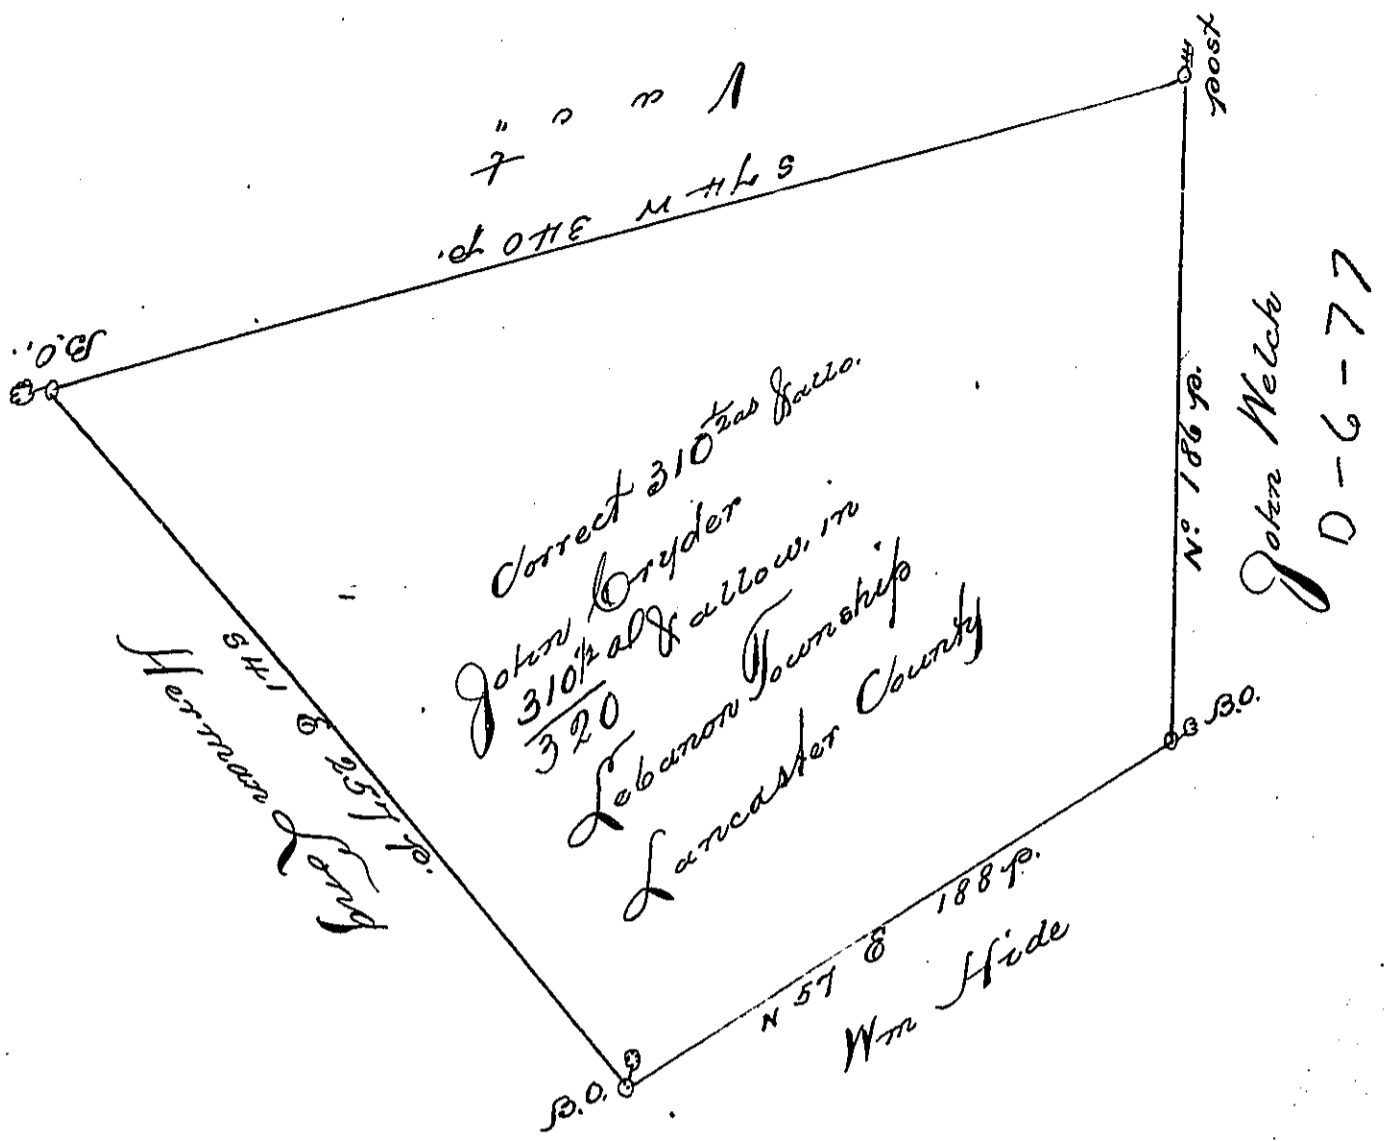 V a c a " t
S 74 W 340 p.
post
B.O.
Correct 310 1/2 as & allo.
John Cryder
310 1/2 al & allow. in
320
Lebanon Township
Lancaster County
No 186 p.
John Welch
D-6-77
S 41 E 257 p.
Herman Long
B.O.
N 57 E 188 p.
Wm Hide
B.O.